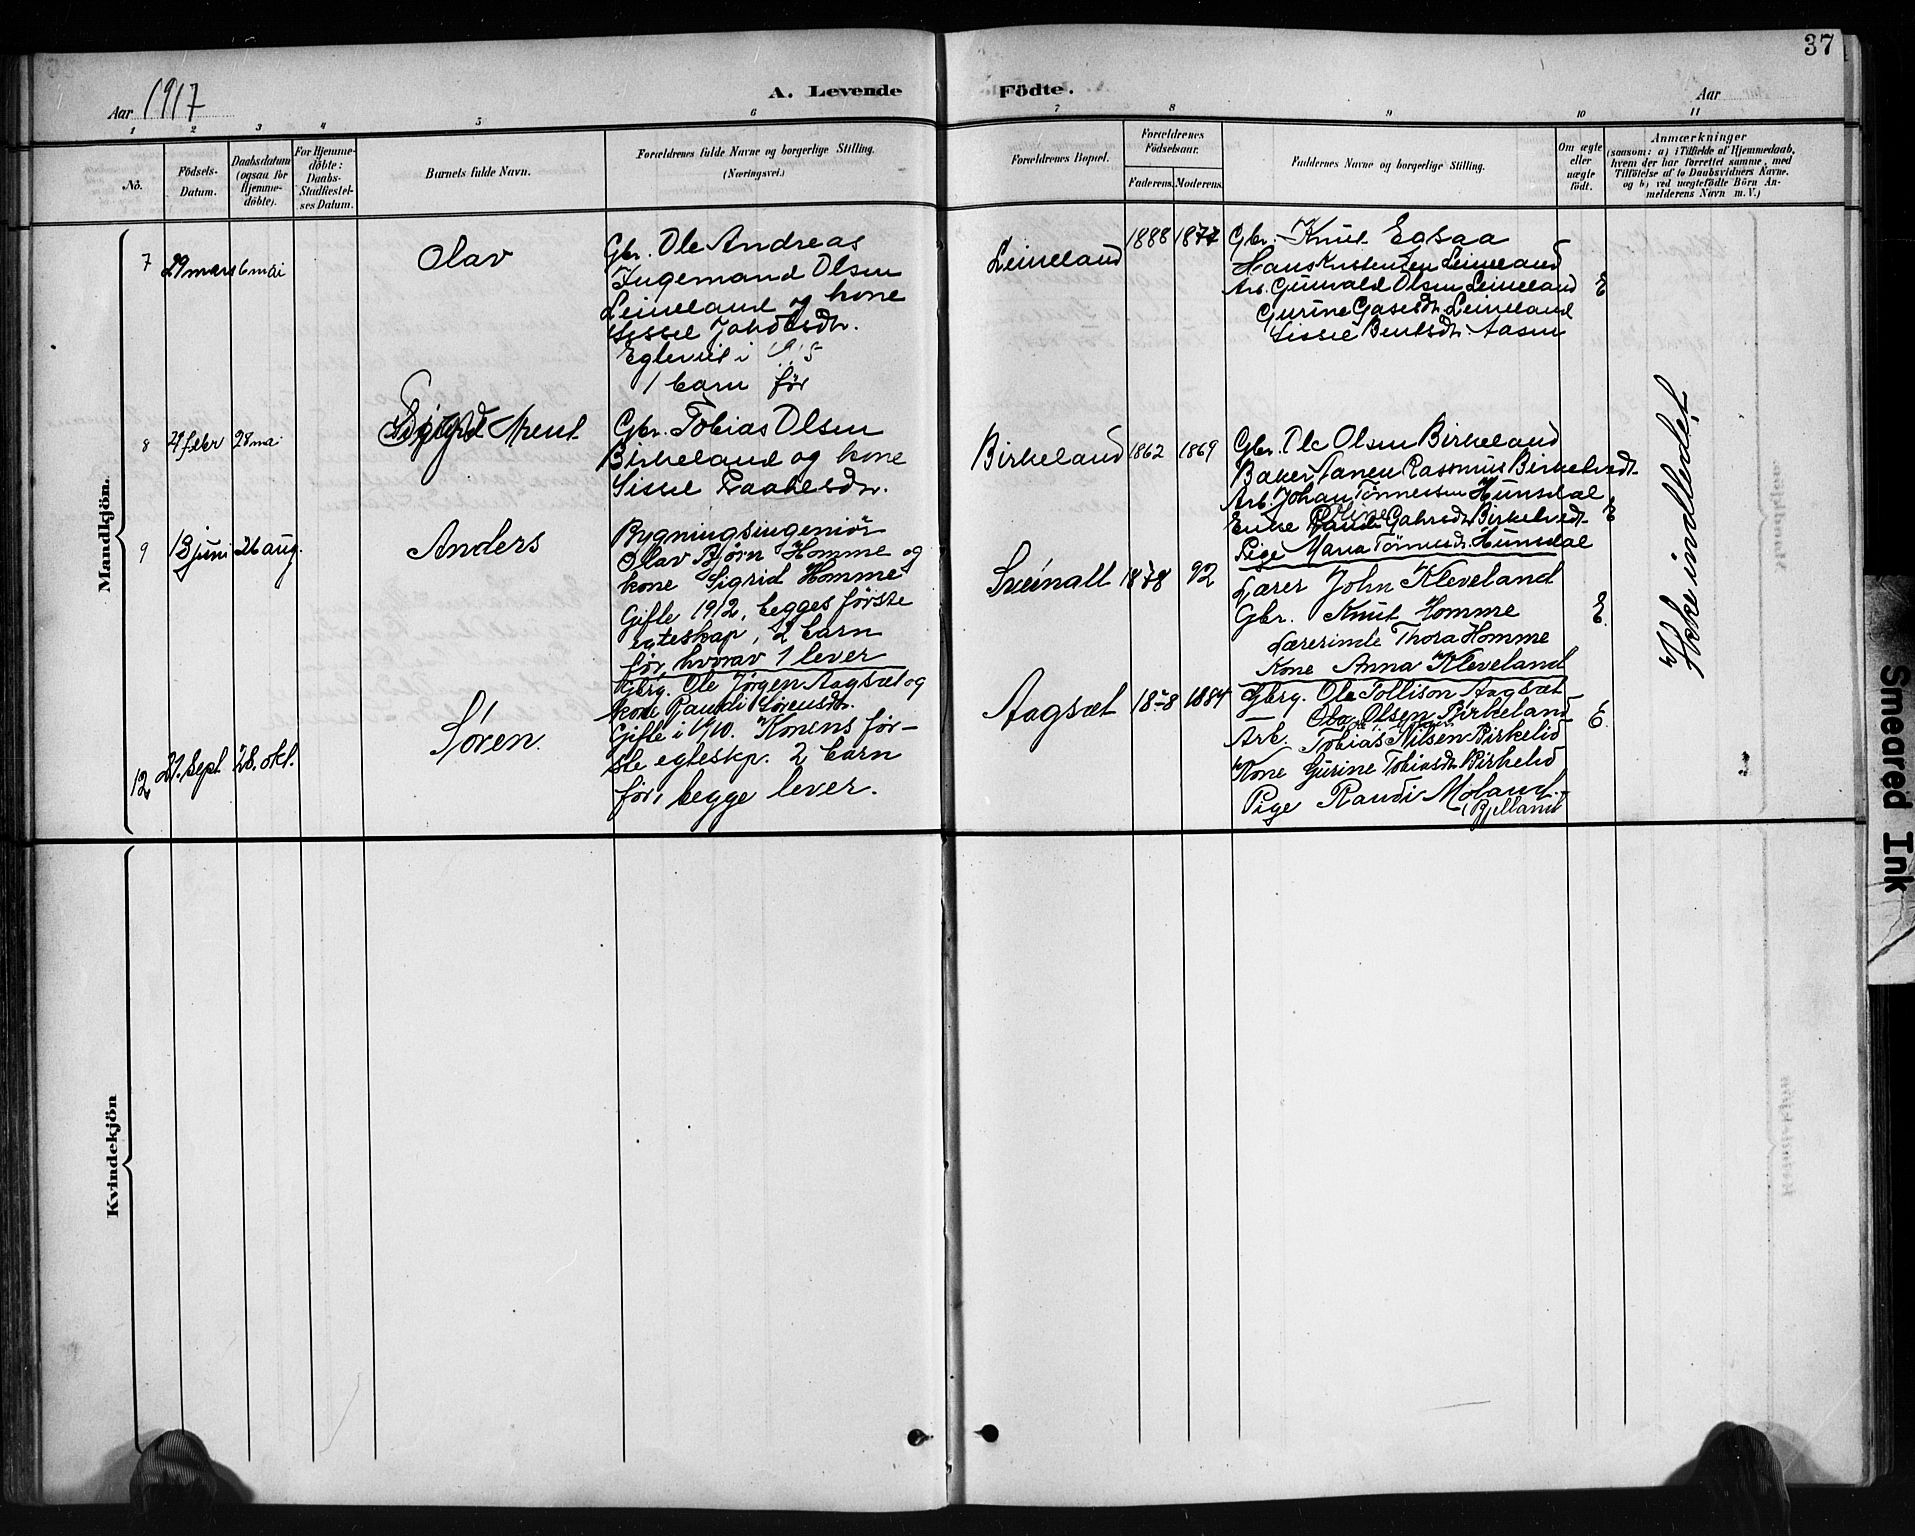 37
Aar 1917
A. Levende Födte.
Aar
1 2 3 4 5 6 7 8 9 10 11
No.
Födsels-
Datum.
Daabsdatum
(ogsaa for
Hjemme-
döbte).
For Hjemme-
döbte:
Daabs-
Stadfæstel-
ses Datum.
Barnets fulde Navn.
Forældrenes fulde Navne og borgerlige Stilling.
(Næringsvei.)
Forældrenes Bopæl.
Forældrenes
Födselsaar.
Faderens. Moderens.
Faddernes Navne og borgerlige Stilling.
Om ægte
eller
uægte
födt.
Anmærkninger
(saasom: a) i Tilfælde af Hjemmedaab,
hvem der har forrettet samme, med
Tilföielse af to Daabsvidners Navne.
og b) ved uægtefödte Börn An-
melderens Navn m. V.)
Mandkjön.
7 29 mars 6 mai
Olav
Gbr. Ole Andreas
Ingemand Olsen
Leineland og kone
Sissel
i
1 barn før
Leineland
1888 1877
Gbr. Knut Egsaa
Hans Leineland
Arb. Gunvald Olsen Leineland
Gurine Leineland
Sissel Aasen
E
8 28 mai
Arent
Gbr. Tobias Olsen
Birkeland og kone
Sissel
Birkeland
1862 1869
Gbr. Ole Olsen Birkeland
Rasmus
Arb. Johan Tønnessen Hunsdal
Enke
Pige Maria Hunsdal
E
9 juni 26 aug.
Anders
Bygningsingeniør
Olav Bjørn Homme og
kone Sigrid Homme
Gifte 1912, begges første
egteskap, 2 barn
før, hvorav 1 lever
1878 92
Lærer John Kleveland
Gbr. Knut Homme
Lærerinde Thora Homme
Kone Anna Kleveland
E.
12 sept. 28. okt.
Søren.
Gbrg. Ole Jørgen Aagsæt og
kone Randi Sørensdtr.
Gifte i 1910. Konens før-
ste egteskp. 2 barn
før, begge lever.
Aagsæt
1884
Gbrg. Ole Tollison Aagsæt
Olsen Birkeland
Arb. Tobias Nilsen Birkelid
Kone Gurine Tobiasdtr. Birkelid
Pige Randi Moland
(Bjelland
E.
Ikke indledet
Kvindekjön
Smeared Ink